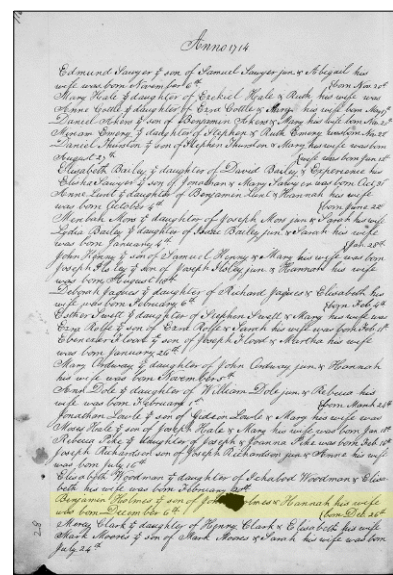 Anno 1714
Edmund Sawyer ye son of Samuel Sawyer jun. & Abigail his
wife was born November 6th {born Nov 20th
Mary Hale ye daughter of Ezekiel Hale & Ruth his wife was
Anne Cottle ye daughter of Ezra Cottle & Mary his wife born
Daniel ye son of Benjamin & Mary his wife born Nov 21st
Miriam Emery ye daughter of Stephen & Ruth Emery was born Nov 28
Daniel Thurston ye son of Stephen Thurston & Mary his wife was born
August 27th {wife was born Jan 2d
Elizabeth Bailey ye daughter of David Bailey & Experience his
Elisha Sawyer ye son of Jonathan & Mary Sawyer was born Oct 21
Anne Lunt ye daughter of Benjamin Lunt & Hannah his wife
was born October 4th {born June 22d
Mors ye daughter of Joseph Mors jun & Sarah his wife
Lydia Bailey ye daughter of Isaac Bailey jun. & Sarah his wife
was born January 4th
John Henny ye son of Samuel Henny & Mary his wife was born
Joseph Ilsley ye son of Joseph Ilsley jun. & Hannah his wife
was born August 10th
Deborah Jaques ye daughter of Richard Jaques & Elisabeth his
wife was born February 6th {born Feb
Esther Swett ye daughter of Stephen Swett & Mary his wife was
Ezra Rolfe ye son of Ezra Rolfe & Sarah his wife was born Feb
Ebenezer Flood ye son of Joseph Flood & Martha his wife
was born January 26th
Mary Ordway ye daughter of John Ordway jun & Hannah
his wife was born November 5th
Dole ye daughter of William Dole jun & Rebecca his
wife was born February 1st {born March 24th
Jonathan Lowle ye son of Gideon Lowle & Mary his wife was
Moses Hale ye son of Joseph Hale & Mary his wife was born Jan
Rebecca Pike ye daughter of Joseph & Joanna Pike was born Feb 10th
Joseph Richardson son of Joseph Richardson jun & Anne his wife
was born July 16th
Elisabeth Woodman ye daughter of Ichabod Woodman & Elisa-
beth his wife was born February
Benjamin Holmes ye son of John Holmes & Hannah his wife
was born December 6th {born Dec 26th
Mercy Clark ye daughter of Henry Clark & Elisabeth his wife
Mark Moores ye son of Mark Moores & Sarah his wife was born
July 24th
28